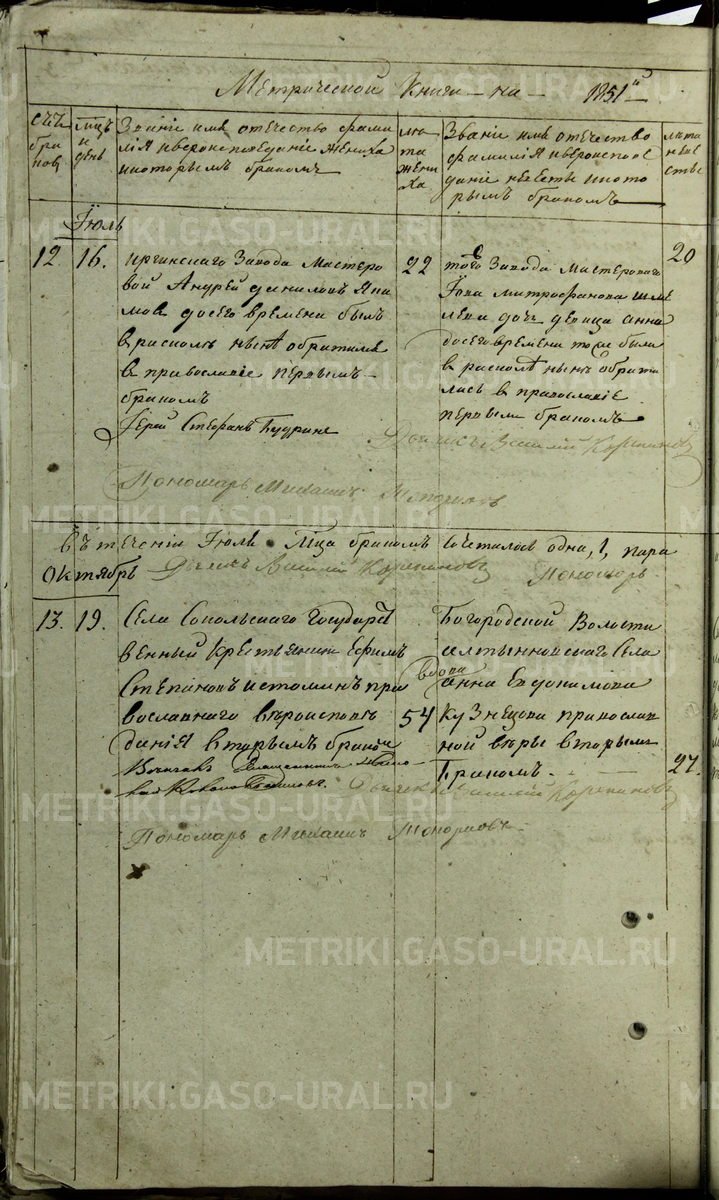 Метрической книги на 1851й
Счетъ браковъ
Мцъ и день
Званіе имя отечество фамилія и вероисповеданіе жениха и которымъ бракомъ
лета жениха
Званіе имя отечество фамилія и вероисповеданіе невесты и которымъ бракомъ
лета невесты
Іюль
12
16.
Иргинскаго Завода Мастеро
вой Андрей Даниловъ
до сего времени былъ
въ расколѣ нынѣ обратился
в православіе первымъ
бракомъ
Іерей Стефанъ Будринъ
22
того Завода Мастероваго
Іова Митрофанова
дочь девица Анна
до сего времени тоже была
в расколѣ нынѣ обрати
лась в православіе
первымъ бракомъ
20
Дьячекъ Василій
Пономарь Михаилъ Топорковъ
въ теченіи Іюля Мца бракомъ сочеталось одна, 1, пара
Октябрь
Дьячекъ Василій
Пономарь
13.
19.
Села Сопольскаго Государст
венный Крестьянинъ Ефимъ
Степановъ Истоминъ пра
вославнаго вѣроиспове
данія вторымъ бракомъ
54
Богородской Волости
Алтынновскаго Села
вдова
Анна Евдокимова
Кузнецова православ
ной вѣры вторымъ
бракомъ.
27.
Дьячекъ Василій
Пономарь Михаилъ Топорковъ
METRIKI.GASO-URAL.RU